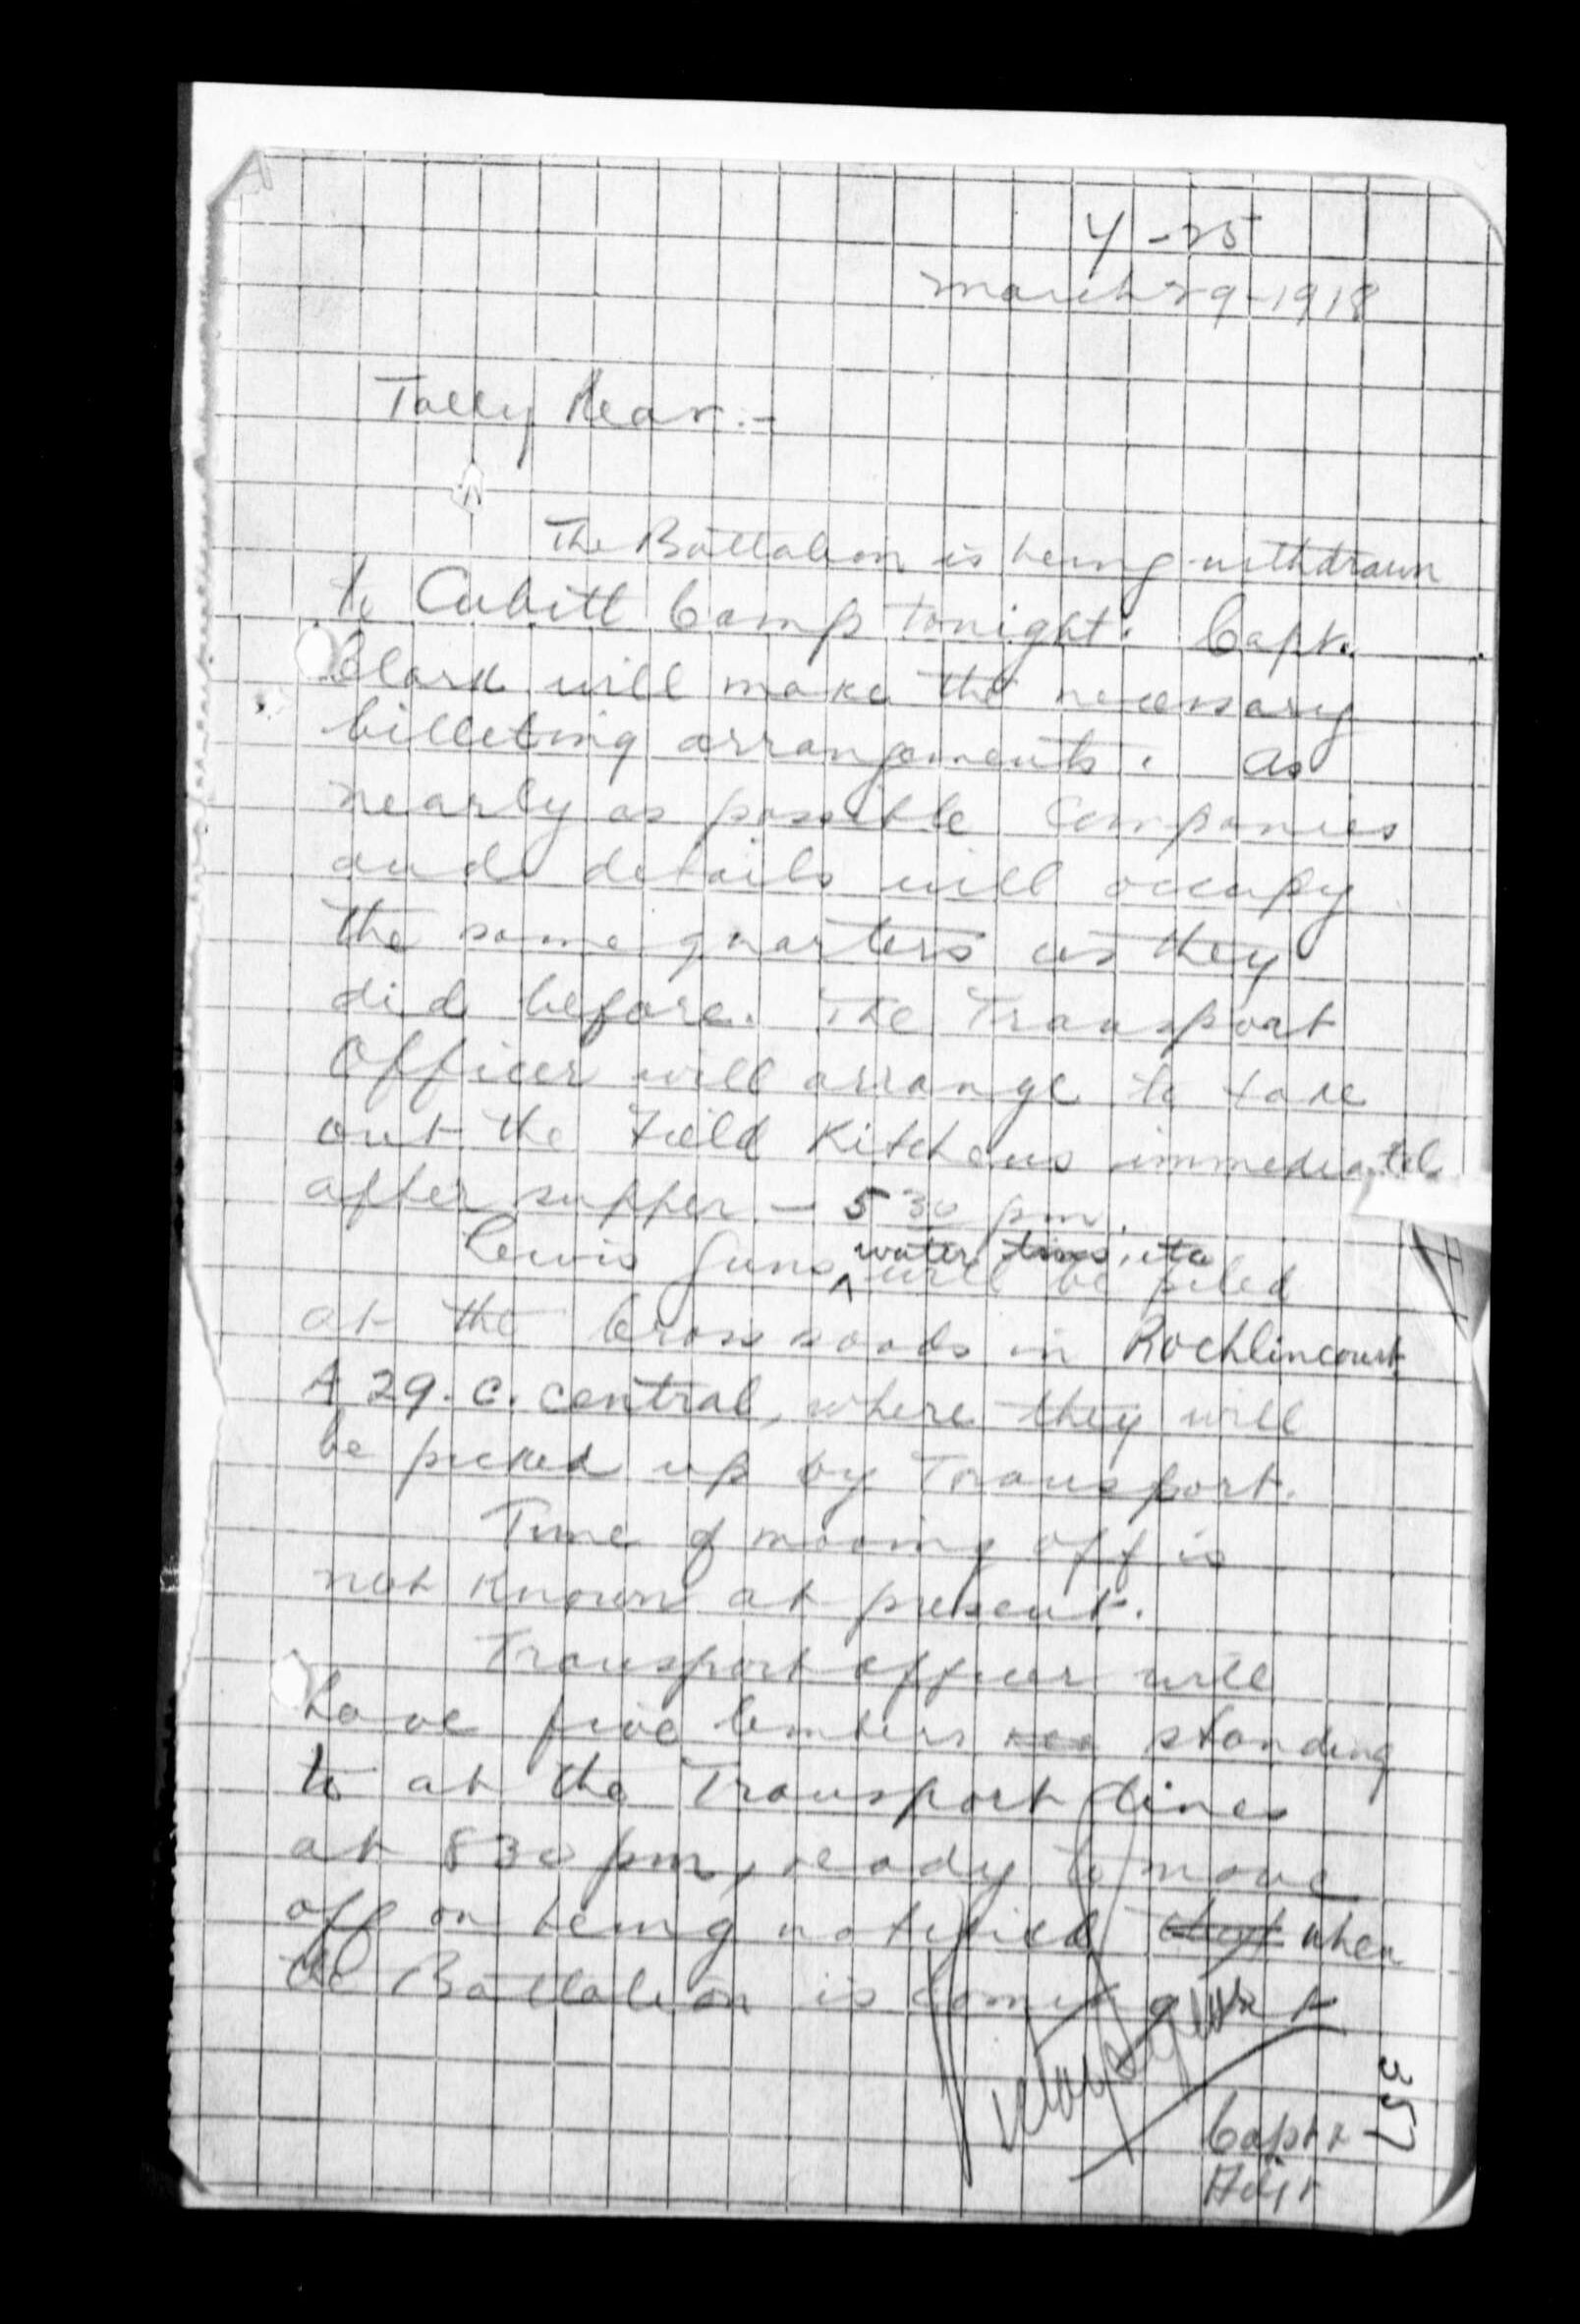 Y-25
March 29-1918
Tally Rear:-
The Battalion is being withdrawn
to Cubitt Camp tonight. Capt.
Clark will make the necessary
billeting arrangements. As
nearly as possible Companies
and details will occupy
the same quarters as they
did before. The Transport
Officer will arrange to take
out the Field Kitchens immediatel
after supper - 530 pm.
water tins, etc
Lewis Guns ^ will be piled
at the Cross roads in Rochlincourt
A 29. c. central, where they will
be picked up by Transport.
Time of moving off is
not known at present.
Transport officer will
have five limbers standing
to at the Transport lines
at 830 pm, ready to move
off on being notified that when
the Battalion is coming out
Capt &
Adjt
357